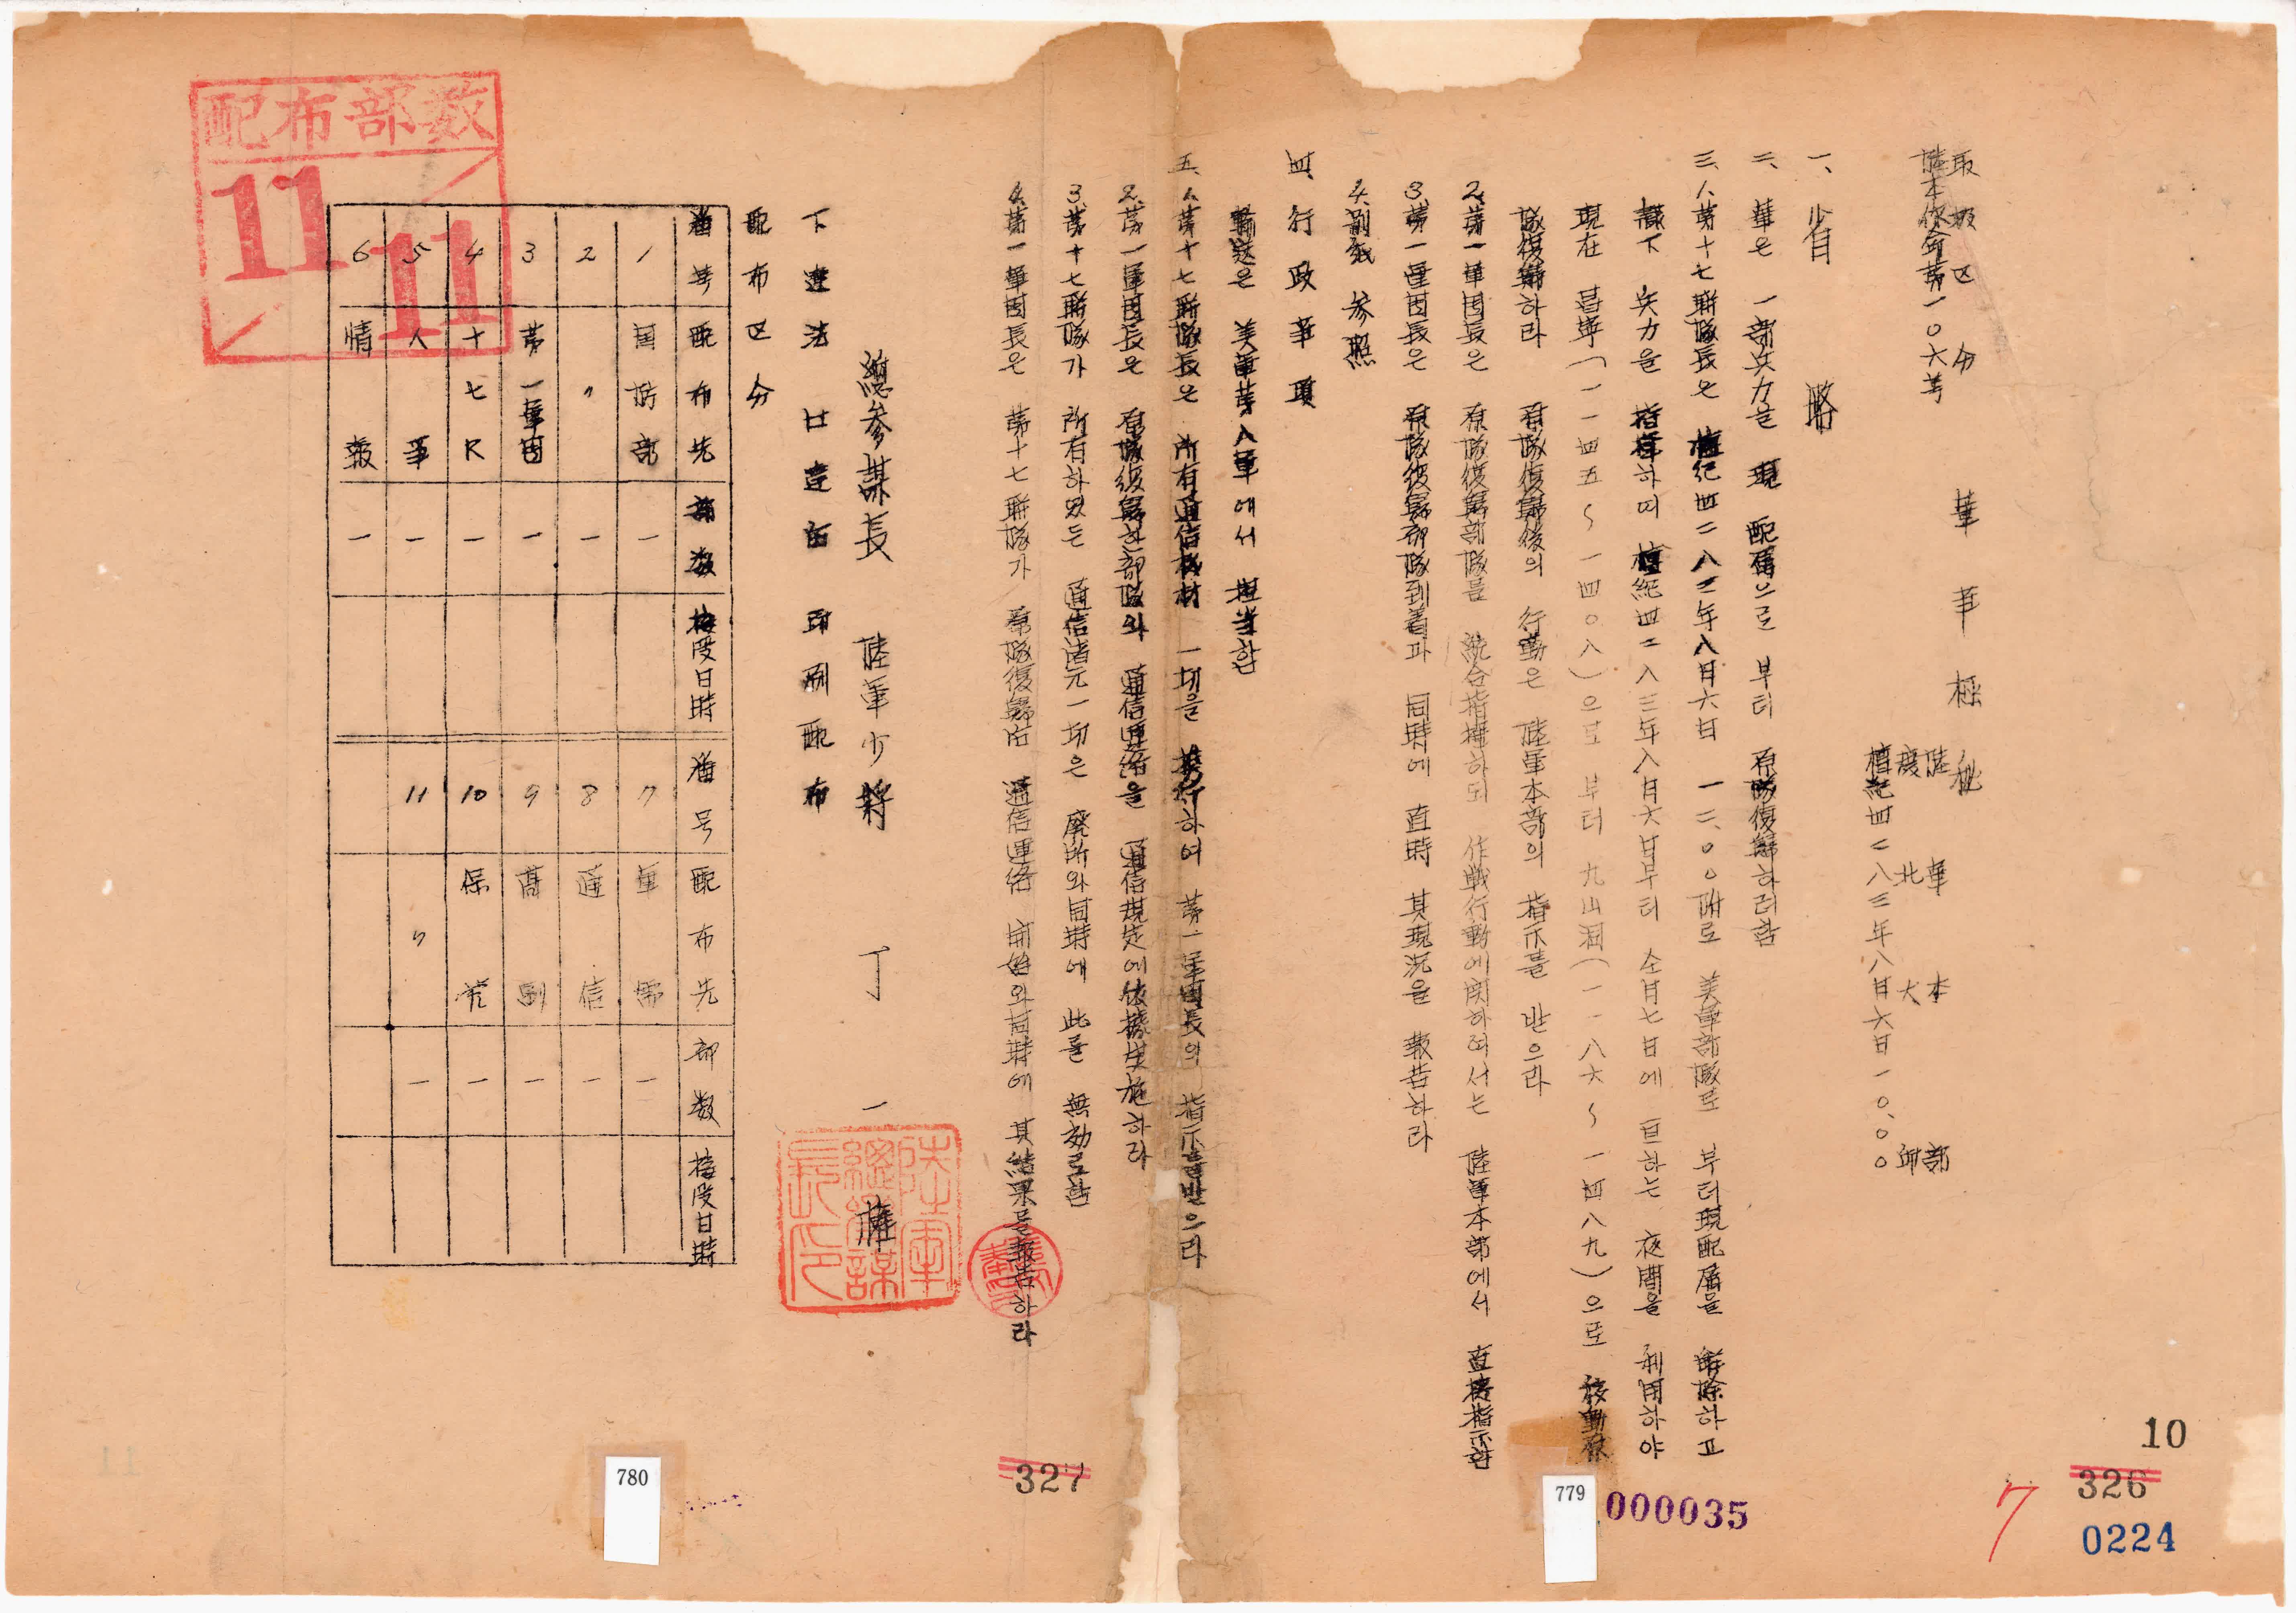 取扱区分 軍事極秘
陸本作命第一〇六号
陸軍本部
慶北大邱
檀紀四二八三年八月六日一〇.〇〇
一、省略
二、軍은 一部兵力을 現 配屬으로 부터 原隊復歸하려함
三、1、第十七聯隊長은 檀紀四二八三年八月六日 一二.〇〇附로 美軍部隊로 부터現配屬을 解除하고
隷下 兵力을 指揮하며 檀紀四二八三年八月六日부터 仝月七日에 亘하는 夜間을 利用하야
現在 昌寧(一一四五~一四〇八)으로 부터 九山洞(一一八六~一四八九)으로 移動原
隊復歸하라 原隊復歸後의 行動은 陸軍本部의 指示를 받으라
2、第一軍団長은 原隊復歸部隊를 統合指揮하되 作戰行動에関하여서는 陸軍本部에서 直接指示함
3、第一軍団長은 原隊復歸部隊到着과 同時에 直時 其現況을 報告하라
4、別紙 参照
四、行政事項
輸送은 美軍第八軍에서 担当함
五、1、第十七聯隊長은 所有通信機材 一切을 携行하여 第一軍団長의 指示를받으라
2、第一軍団長은 原隊復歸한部隊와 通信連絡을 通信規定에依據実施하라
3、第十七聯隊가 所有하였든 通信諸元一切은 廃所와同時에 此를 無効로함
4、第一軍団長은 第十七聯隊가 原隊復歸后 通信連絡 開始와同時에 其結果를報告하라
總参謀長 陸軍少將 丁一權
陸軍總參謀長印
下達法 口達后 印刷配布
配布区分
番号 配布先 部数 接受日時 番号 配布先 部数 接受日時
1 国防部 一 7 軍需 一
2 〃 一 8 通信 一
3 第一軍団 一 9 高副 一
4 十七R 一 10 保管 一
5 人事 一 11 〃 一
6 情報 一
配布部数
11
11
10
326
0224
7
000035
779
327
780